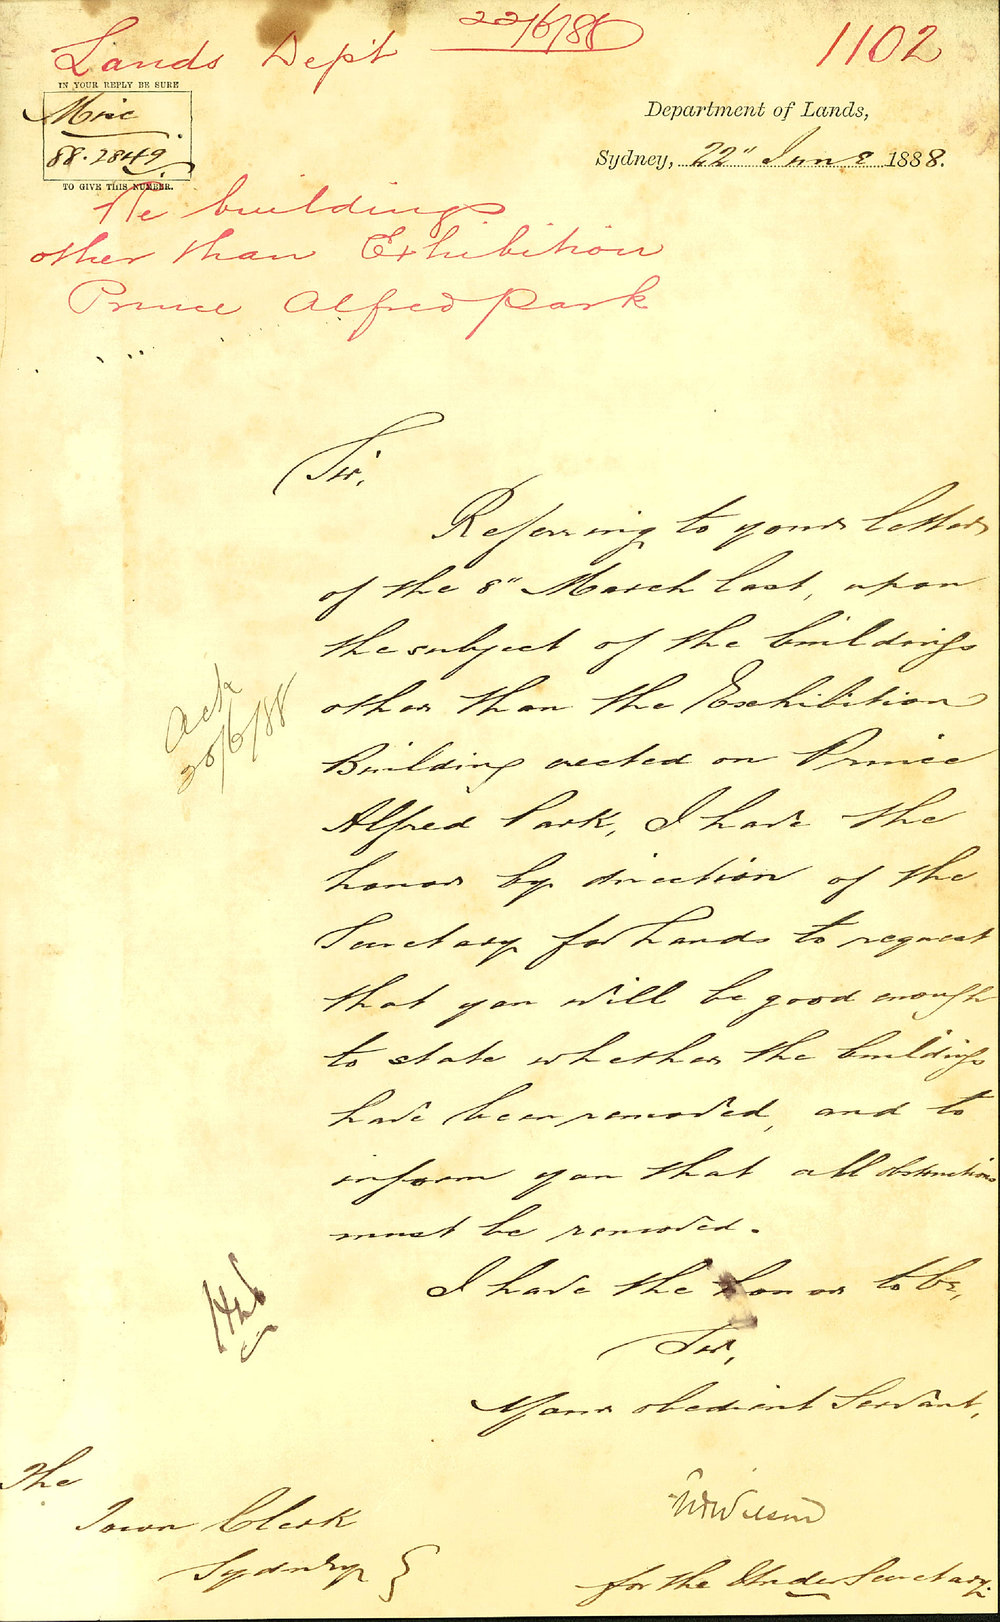 Lands Dept 22/6/88
1102
IN YOUR REPLY BE SURE
Misc
88.2849
TO GIVE THIS NUMBER.
Department of Lands,
Sydney, 22" June 1888.
Re buildings
other than Exhibition
Prince Alfred Park
Sir,
Referring to your letter
of the 8" March last, upon
the subject of the buildings
other than the Exhibition
Building erected on Prince
Alfred Park, I have the
honor by direction of the
Secretary for Lands to request
that you will be good enough
to state whether the buildings
have been removed, and to
inform you that all obstructions
must be removed.
I have the honor to be,
Sir,
Your obedient Servant,
Ack
/6/88
Wilson
for the Under Secretary.
The
Town Clerk
Sydney